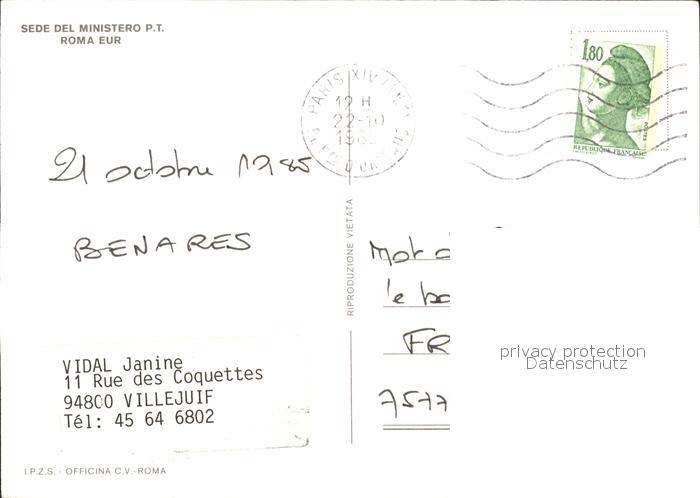 SEDE DEL MINISTERO P.T.
ROMA EUR
1,80
POSTES
REPUBLIQUE FRANÇAISE
PARIS XIV
12 H
22-10
21 octobre 1985
BENARES
RIPRODUZIONE VIETATA
Mot d
le bo
FR
7577
VIDAL Janine
11 Rue des Coquettes
94800 VILLEJUIF
Tél: 45 64 6802
privacy protection
Datenschutz
I.P.Z.S. - OFFICINA C.V.-ROMA